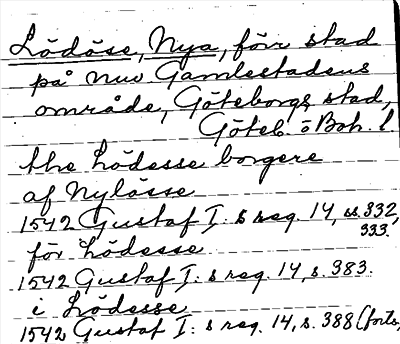 Lödöse, Nya, förr stad
på nuv Gamlestadens
område, Göteborgs stad,
Göteb. o Boh. l.
the Lödesse borgere
af Nylösse
1542 Gustaf I: s reg. 14, ss. 332,
333.
för Lödesse
1542 Gustaf I: s reg. 14, s. 383.
i Lödesse
1542 Gustaf I: s reg. 14, s. 388 (forts.